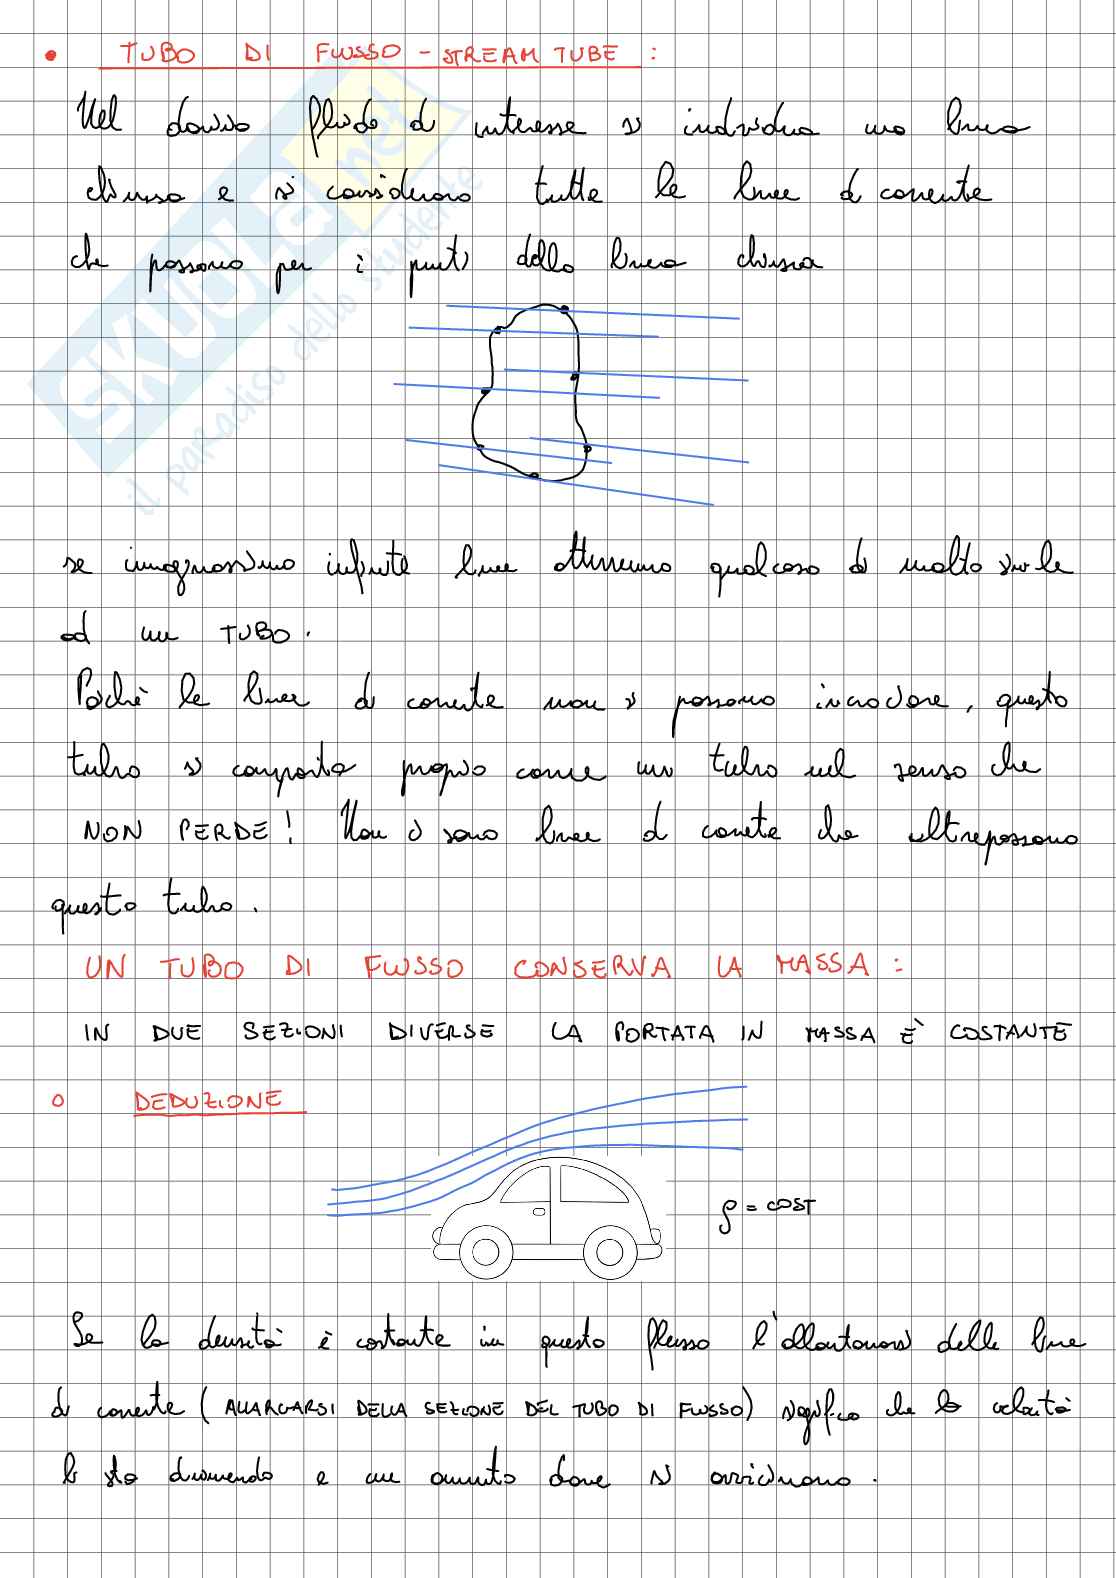 • TUBO DI FLUSSO - STREAM TUBE :
Nel dominio fluido di interesse si individua una linea
chiusa e si considerano tutte le linee di corrente
che passano per i punti della linea chiusa
se immaginassimo infinite linee otterremmo qualcosa di molto simile
ad un TUBO.
Poichè le linee di corrente non si possono incrociare, questo
tubo si comporta proprio come un tubo nel senso che
NON PERDE! Non ci sono linee di corrente che oltrepassano
questo tubo.
UN TUBO DI FLUSSO CONSERVA LA MASSA :
IN DUE SEZIONI DIVERSE LA PORTATA IN MASSA È COSTANTE
○ DEDUZIONE
ρ = COST
Se la densità è costante in questo flusso l'allontanarsi delle linee
di corrente (ALLARGARSI DELLA SEZIONE DEL TUBO DI FLUSSO) significa che la velocità
lì sta diminuendo e un aumento dove si avvicinano.
SKUOLA.net
il paradiso dello studente